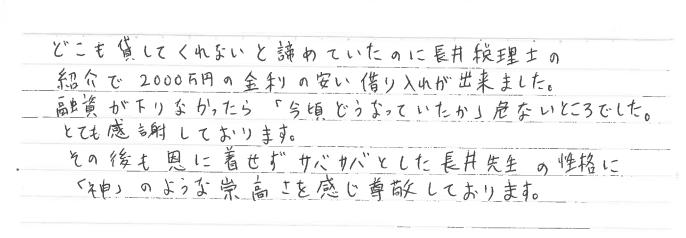 どこも貸してくれないと諦めていたのに長井税理士の
紹介で2000万円の金利の安い借り入れが出来ました。
融資が下りなかったら「今頃どうなっていたか」危ないところでした。
とても感謝しております。
その後も恩に着せずサバサバとした長井先生の性格に
「神」のような崇高さを感じ尊敬しております。